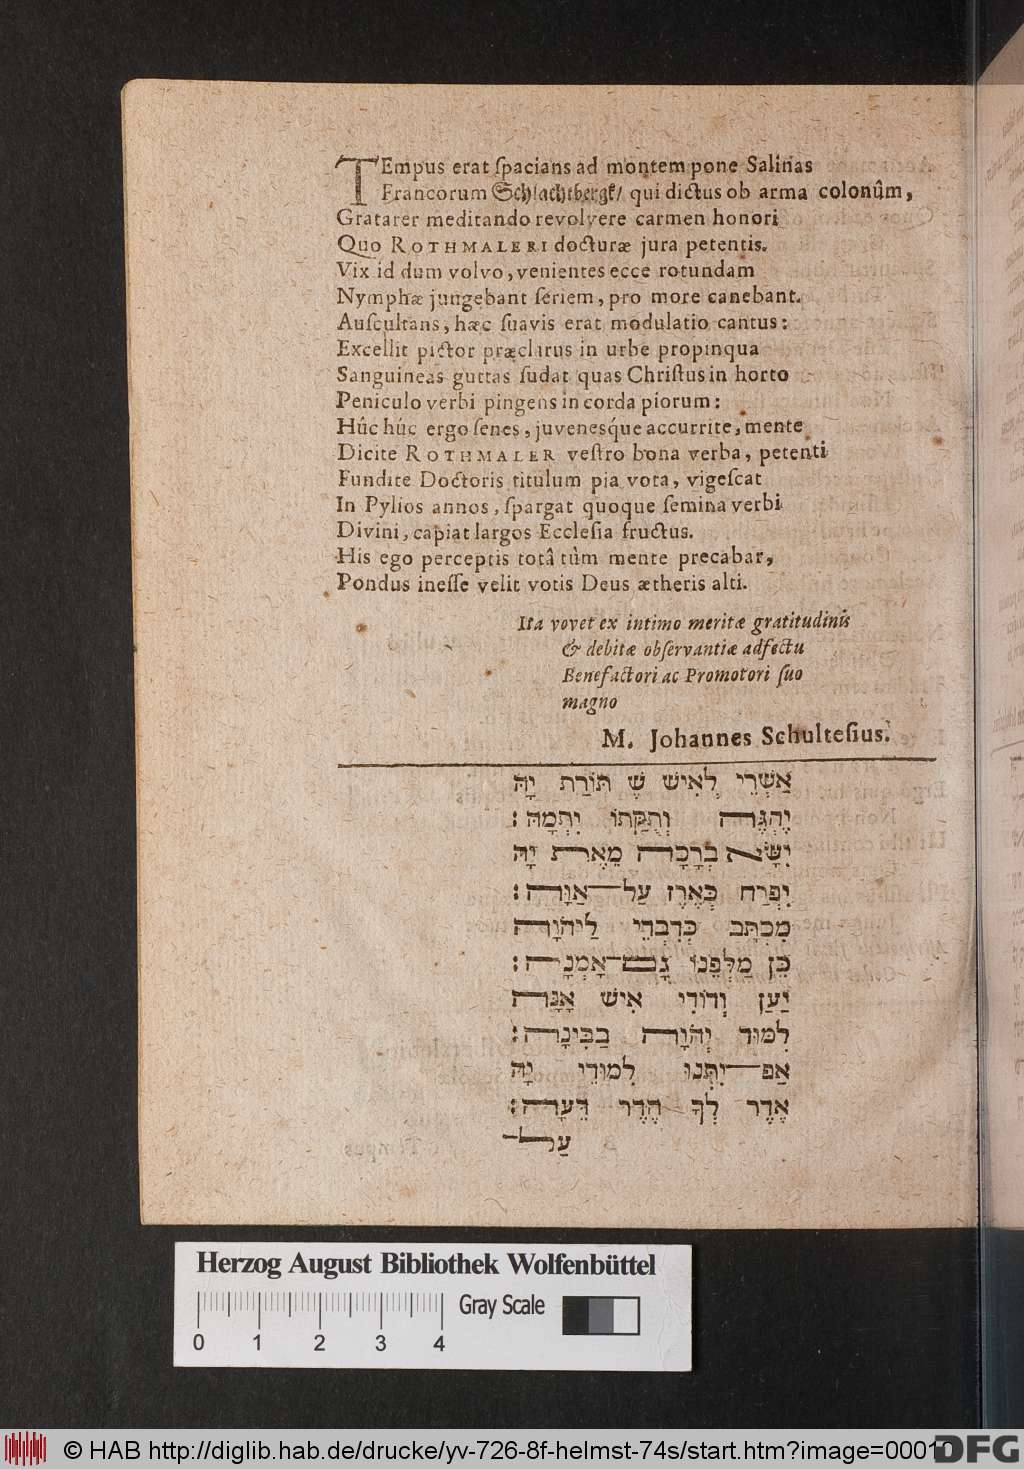 TEmpus erat ſpacians ad montem pone Salinas
Francorum Schlachtbergk/ qui dictus ob arma colonûm,
Gratarer meditando revolvere carmen honori
Quo ROTHMALERI docturæ jura petentis.
Vix id dum volvo, venientes ecce rotundam
Nymphæ jungebant ſeriem, pro more canebant.
Auſcultans, hæc ſuavis erat modulatio cantus:
Excellit pictor præclarus in urbe propinqua
Sanguineas guttas ſudat quas Chriſtus in horto
Peniculo verbi pingens in corda piorum:
Hûc húc ergo ſenes, juvenesq́ue accurrite, mente
Dicite ROTHMALER veſtro bona verba, petenti
Fundite Doctoris titulum pia vota, vigeſcat
In Pylios annos, ſpargat quoque ſemina verbi
Divini, capiat largos Eccleſia fructus.
His ego perceptis totâ tùm mente precabar,
Pondus ineſſe velit votis Deus ætheris alti.
Ita vovet ex intimo meritæ gratitudinis
& debitæ obſervantiæ adfectu
Benefactori ac Promotori ſuo
magno
M. Johannes Schulteſius.
אַשְׁרֵי לְאִישׁ שֶׁ תּוֹרַת יָהּ
יֶהְגֶּה וְתֻקַּתוֹ יִתְמָהּ:
יִשָּׂא בְרָכָה מֵאֶת יָהּ
יִפְרַח כְּאֶרֶז עַל־אַוָּה:
מִכְתָּב כְּדִבְרֵי לַיהֹוָה
כֵּן מַלְּפֵנוֹ גָם־אָמְנָה:
יַעַן וְדוֹדִי אִישׁ אָנָּה
לִמּוּד יְהֹוָה בַּבִּינָה:
אַף־יִתְּנוּ לִמּוּדֵי יָהּ
אֶדֶר לְךָ הֶדֶר דֵּעָה:
עַל־
Herzog August Bibliothek Wolfenbüttel
0 1 2 3 4 Gray Scale
© HAB http://diglib.hab.de/drucke/yv-726-8f-helmst-74s/start.htm?image=00010
DFG